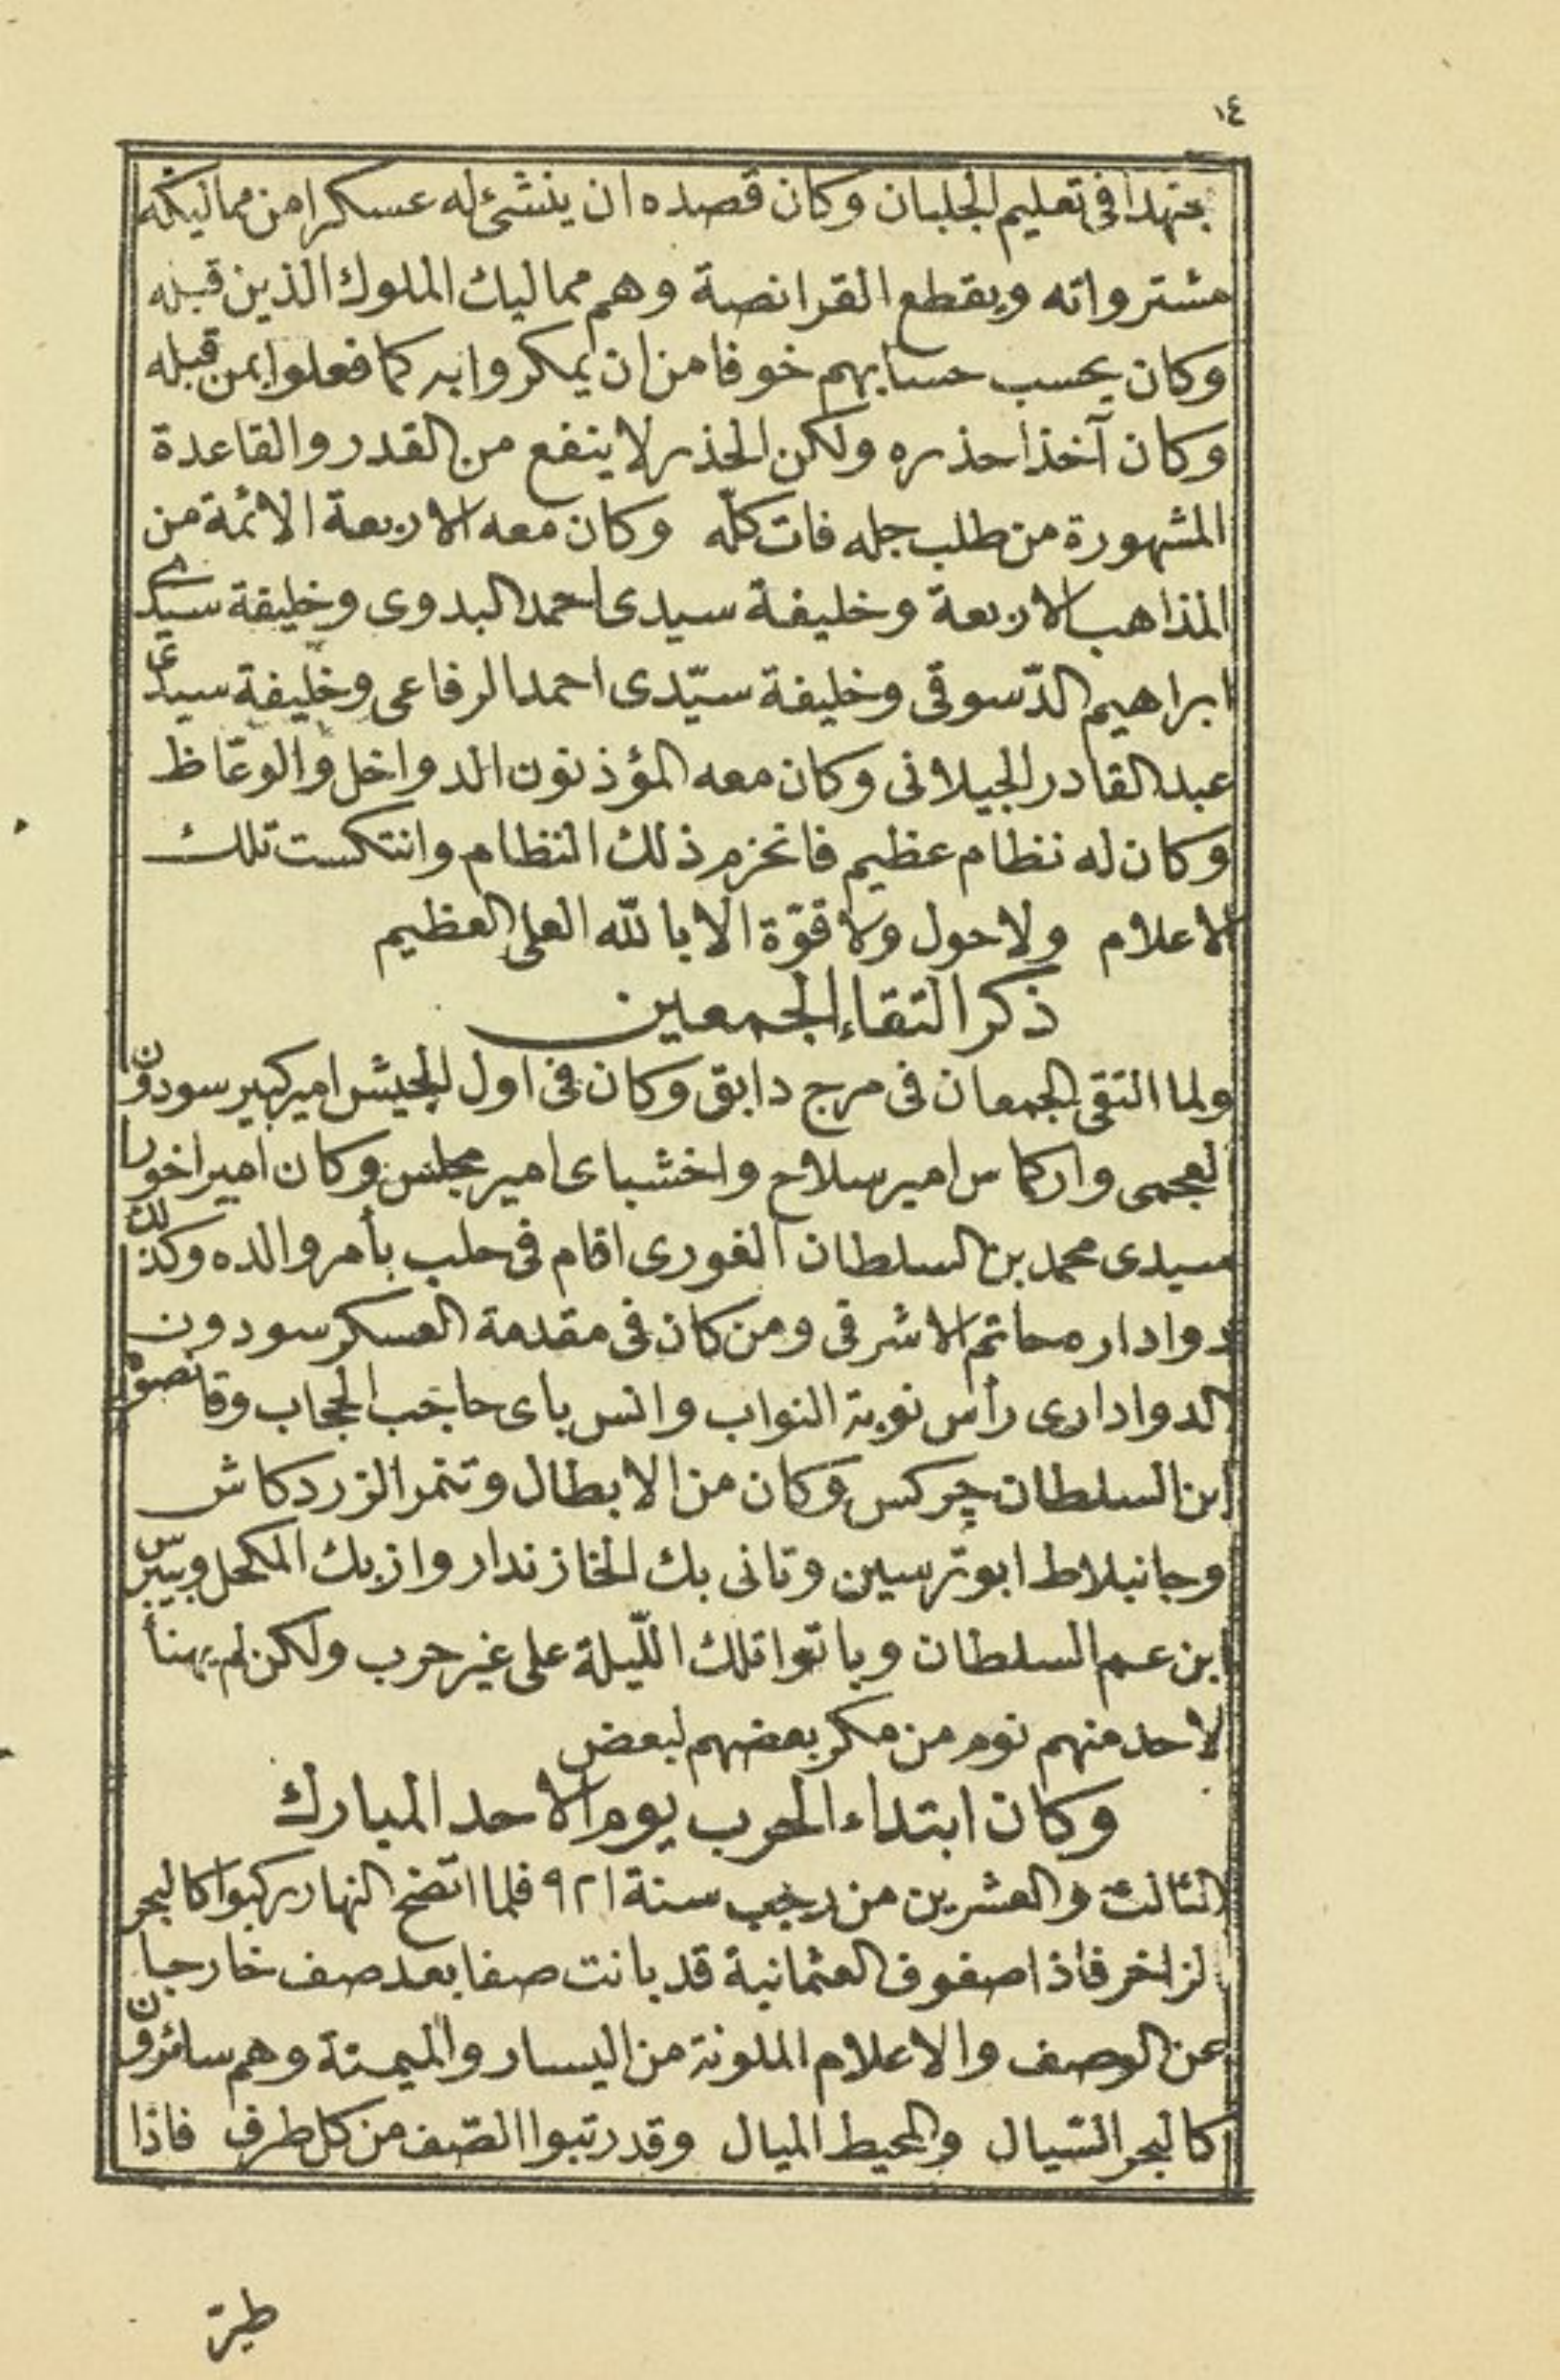 ١٤
مجتهدا فى تعليم الجلبان وكان قصده ان ينشئ له عسكرا من مماليكه
مشترواته ويقطع القرانصة وهم مماليك الملوك الذين قبله
وكان يحسب حسابهم خوفا من ان يمكروا به كما فعلوا بمن قبله
وكان آخذا حذره ولكن الحذر لا ينفع من القدر والقاعدة
المشهورة من طلب جله فات كلّه وكان معه الاربعة الائمة من
المذاهب الاربعة وخليفة سيدى احمد البدوى وخليفة سيدى
ابراهيم الدّسوقى وخليفة سيّدى احمد الرفاعى وخليفة سيدى
عبد القادر الجيلانى وكان معه المؤذنون الدواخل والوعّاظ
وكان له نظام عظيم فانخزم ذلك النظام وانتكست تلك
الاعلام ولا حول ولا قوّة الا بالله العلى العظيم
ذكر التقاء الجمعين
ولما التقى الجمعان فى مرج دابق وكان فى اول الجيش امير كبير سودون
العجمى واركماس امير سلاح واخشباى امير مجلس وكان امير اخور
سيدى محمد بن السلطان الغورى اقام فى حلب بأمر والده وكذلك
دوادار محاتم الاشرفى ومن كان فى مقدمة العسكر سودون
الدوادارى رأس نوبة النواب وانس باى حاجب الحجاب وقانصوه
ابن السلطان چركس وكان من الابطال وتنمر الزردكاش
وجانبلاط ابو ترسين وتانى بك الخازندار وازبك المكحل وبيبرس
ابن عم السلطان وباتوا تلك اللّيلة على غير حرب ولكن لم يهنأ
لاحد منهم نوم من مكر بعضهم لبعض
وكان ابتداء الحرب يوم الاحد المبارك
الثالث والعشرين من رجب سنة ٩٢١ فلما اتضح النهار ركبوا كالبحر
الزاخر فاذا صفوف العثمانية قد بانت صفا بعد صف خارجا
عن الوصف والاعلام الملونة من اليسار والميمنة وهم سائرون
كالبحر السّيال والمحيط الميال وقد رتبوا الصّف من كل طرف فاذا